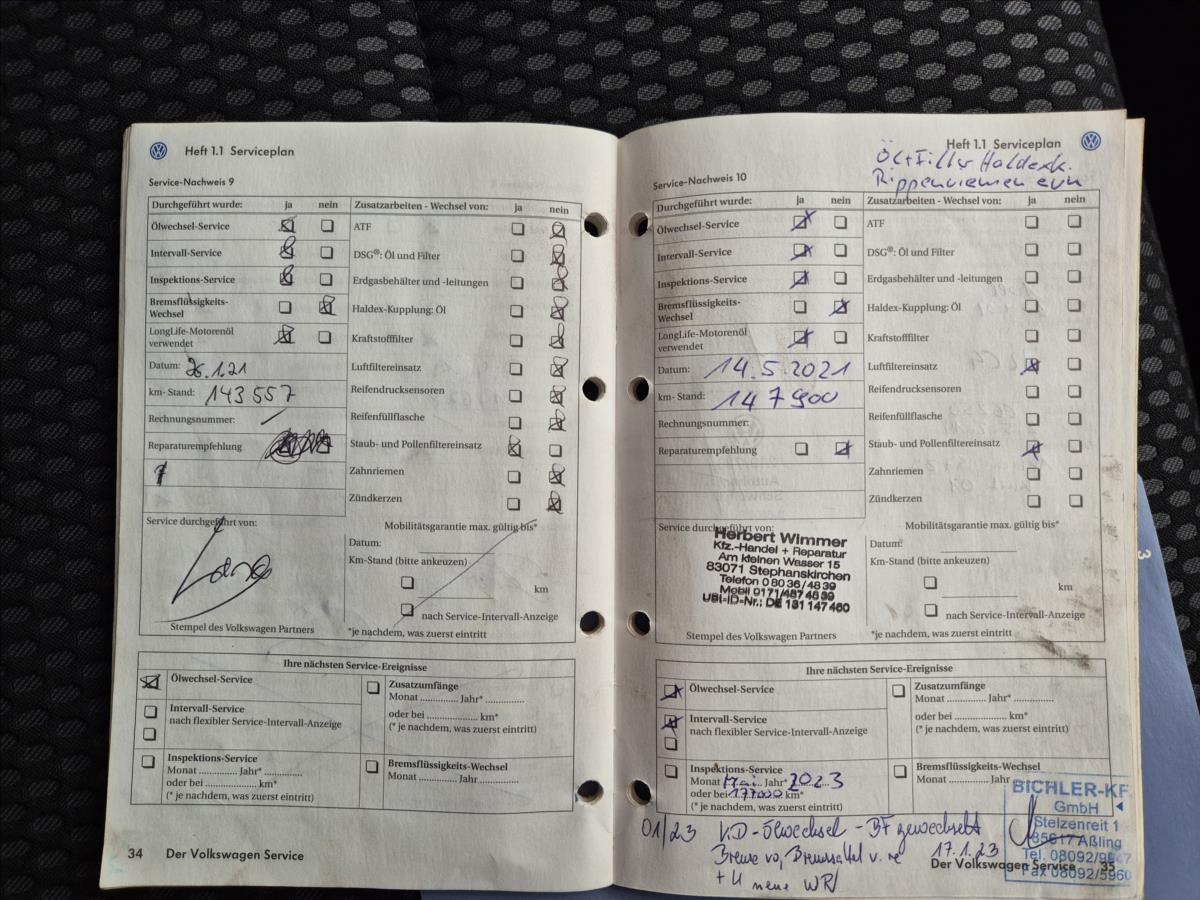 Heft 1.1 Serviceplan
Service-Nachweis 9
Durchgeführt wurde: ja nein Zusatzarbeiten - Wechsel von: ja nein
Ölwechsel-Service ATF
Intervall-Service DSG®: Öl und Filter
Inspektions-Service Erdgasbehälter und -leitungen
Bremsflüssigkeits-
Wechsel Haldex-Kupplung: Öl
LongLife-Motorenöl
verwendet Kraftstofffilter
Datum: 26.1.21 Luftfiltereinsatz
km- Stand: 143 557 Reifendrucksensoren
Rechnungsnummer: Reifenfüllflasche
Reparaturempfehlung Staub- und Pollenfiltereinsatz
Zahnriemen
Zündkerzen
Service durchgeführt von: Mobilitätsgarantie max. gültig bis*
Datum:
Km-Stand (bitte ankeuzen)
km
nach Service-Intervall-Anzeige
Stempel des Volkswagen Partners *je nachdem, was zuerst eintritt
Ihre nächsten Service-Ereignisse
Ölwechsel-Service Zusatzumfänge
Monat ............. Jahr* ..............
Intervall-Service
nach flexibler Service-Intervall-Anzeige
oder bei ................... km*
(* je nachdem, was zuerst eintritt)
Inspektions-Service Bremsflüssigkeits-Wechsel
Monat ........... Jahr* .............. Monat ............. Jahr ..............
oder bei .................. km*
(* je nachdem, was zuerst eintritt)
34 Der Volkswagen Service
Heft 1.1 Serviceplan
Öl+Filter Haldexk.
Rippenriemen
Service-Nachweis 10
Durchgeführt wurde: ja nein Zusatzarbeiten - Wechsel von: ja nein
Ölwechsel-Service ATF
Intervall-Service DSG®: Öl und Filter
Inspektions-Service Erdgasbehälter und -leitungen
Bremsflüssigkeits-
Wechsel Haldex-Kupplung: Öl
LongLife-Motorenöl
verwendet Kraftstofffilter
Datum: 14.5.2021 Luftfiltereinsatz
km- Stand: 147 900 Reifendrucksensoren
Rechnungsnummer: Reifenfüllflasche
Reparaturempfehlung Staub- und Pollenfiltereinsatz
Zahnriemen
Zündkerzen
Service durchgeführt von: Mobilitätsgarantie max. gültig bis*
Herbert Wimmer
Kfz.-Handel + Reparatur
Am kleinen Wasser 15
83071 Stephanskirchen
Telefon 0 80 36/48 39
Mobil 0171/487 48 39
USt-ID-Nr.: DE 131 147 460
Datum:
Km-Stand (bitte ankeuzen)
km
nach Service-Intervall-Anzeige
Stempel des Volkswagen Partners *je nachdem, was zuerst eintritt
Ihre nächsten Service-Ereignisse
Ölwechsel-Service Zusatzumfänge
Monat ............. Jahr* ..............
Intervall-Service
nach flexibler Service-Intervall-Anzeige
oder bei ................... km*
(* je nachdem, was zuerst eintritt)
Inspektions-Service Bremsflüssigkeits-Wechsel
Monat Mai Jahr* 2023 Monat ............. Jahr
oder bei 177000 km*
(* je nachdem, was zuerst eintritt)
BICHLER-KF
GmbH
Stelzenreit 1
85617 Aßling
Tel. 08092/9
Fax 08092/5960
01/23 Ölwechsel - BF gewechselt
Bremssattel v. re 17.1.23
+ neue
Der Volkswagen Service 35